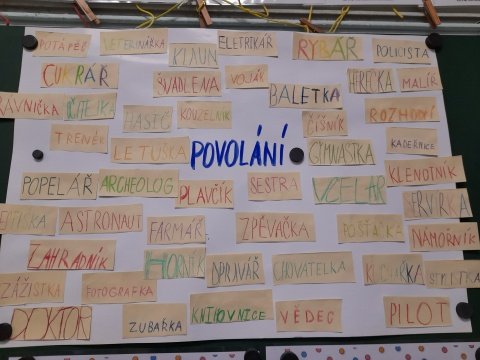 POTÁPĚČ
VETERINÁŘKA
KLAUN
ELETRIKÁŘ
RYBÁŘ
POLICISTA
CUKRÁŘ
ŠVADLENA
VOJÁK
BALETKA
HEREČKA
MALÍŘ
RÁVNIČKA
UČITELKA
HASIČ
KOUZELNÍK
ČÍŠNÍK
ROZHODČÍ
TRENÉR
LETUŠKA
POVOLÁNÍ
GYMNASTKA
KADEŘNICE
POPELÁŘ
ARCHEOLOG
PLAVČÍK
SESTRA
VČELAŘ
KLENOTNÍK
SERVÍRKA
ASTRONAUT
FARMÁŘ
ZPĚVAČKA
POŠŤAČKA
NÁMOŘNÍK
ZAHRADNÍK
HORNÍK
OPRAVÁŘ
CHOVATELKA
KUCHAŘKA
FOTOGRAFKA
DOKTOR
ZUBAŘKA
KNIHOVNICE
VĚDEC
PILOT